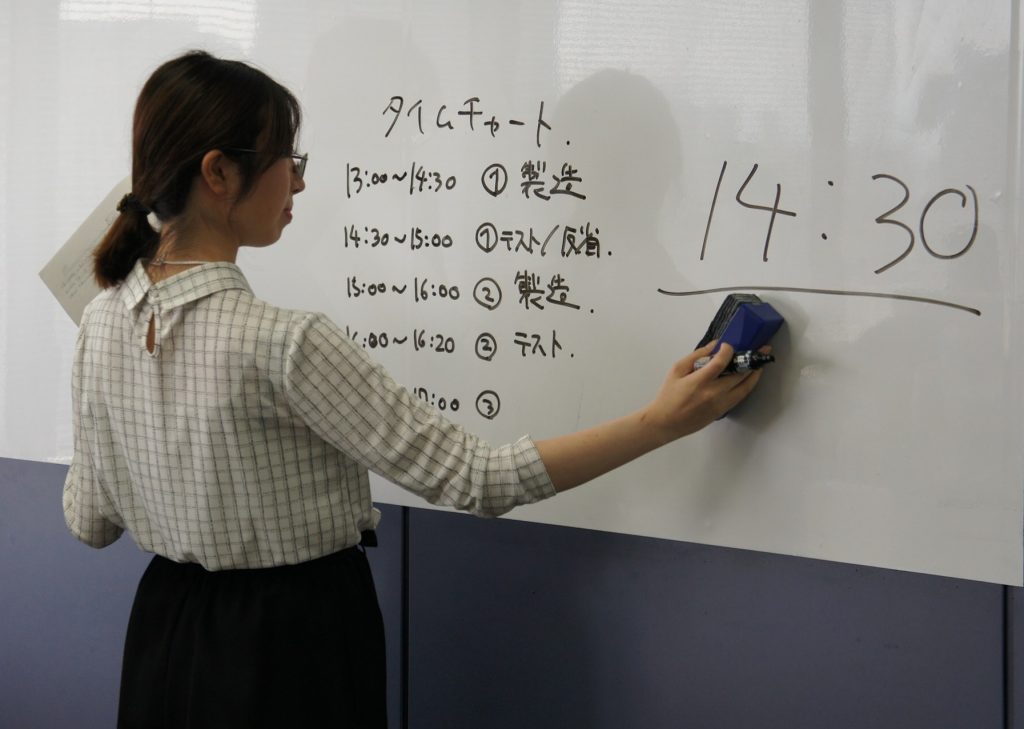 タイムチャート.
13:00～14:30 ① 製造
14:30～15:00 ①テスト/反省.
15:00～16:00 ② 製造.
16:00～16:20 ② テスト.
17:00 ③
14:30